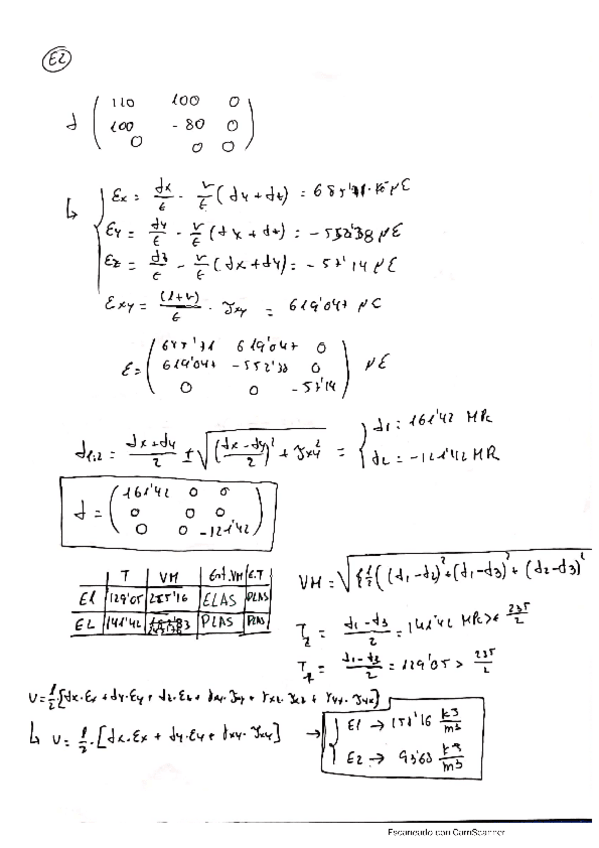 E2
σ ( 110 100 0
100 -80 0
0 0 0 )
↳ { εx = σx/E - ν/E (σy + σz) = 685'71 με
εy = σy/E - ν/E (σx + σz) = -552'38 με
εz = σz/E - ν/E (σx + σy) = -57'14 με
εxy = (1+ν)/E · τxy = 619'047 με
ε = ( 619'047 0
619'047 -552'38 0
0 0 -57'14 ) με
σ1,2 = σx+σy/2 ± √((σx-σy/2)² + τxy²) = { σ1 = 161'42 MPa
σ2 = -121'42 MPa
σ = ( 161'42 0 0
0 0 0
0 0 -121'42 )
T VM Est.VM E.T
E1 129'05 255'16 ELAS PLAS
E2 141'42 PLAS PLAS
VM = √{1/2((σ1-σ2)² + (σ1-σ3)² + (σ2-σ3)²
T2 = σ1-σ3/2 = 141'42 MPa > 235/2
T1 = σ1-σ3/2 = 129'05 > 235/2
U = 1/2 [σx·εx + σy·εy + σz·εz + γxy·τxy + γxz·τxz + γyz·]
↳ U = 1/2 · [σx·εx + σy·εy + γxy·τxy] → { E1 → 158'16 kJ/m3
E2 → kJ/m3
Escaneado con CamScanner